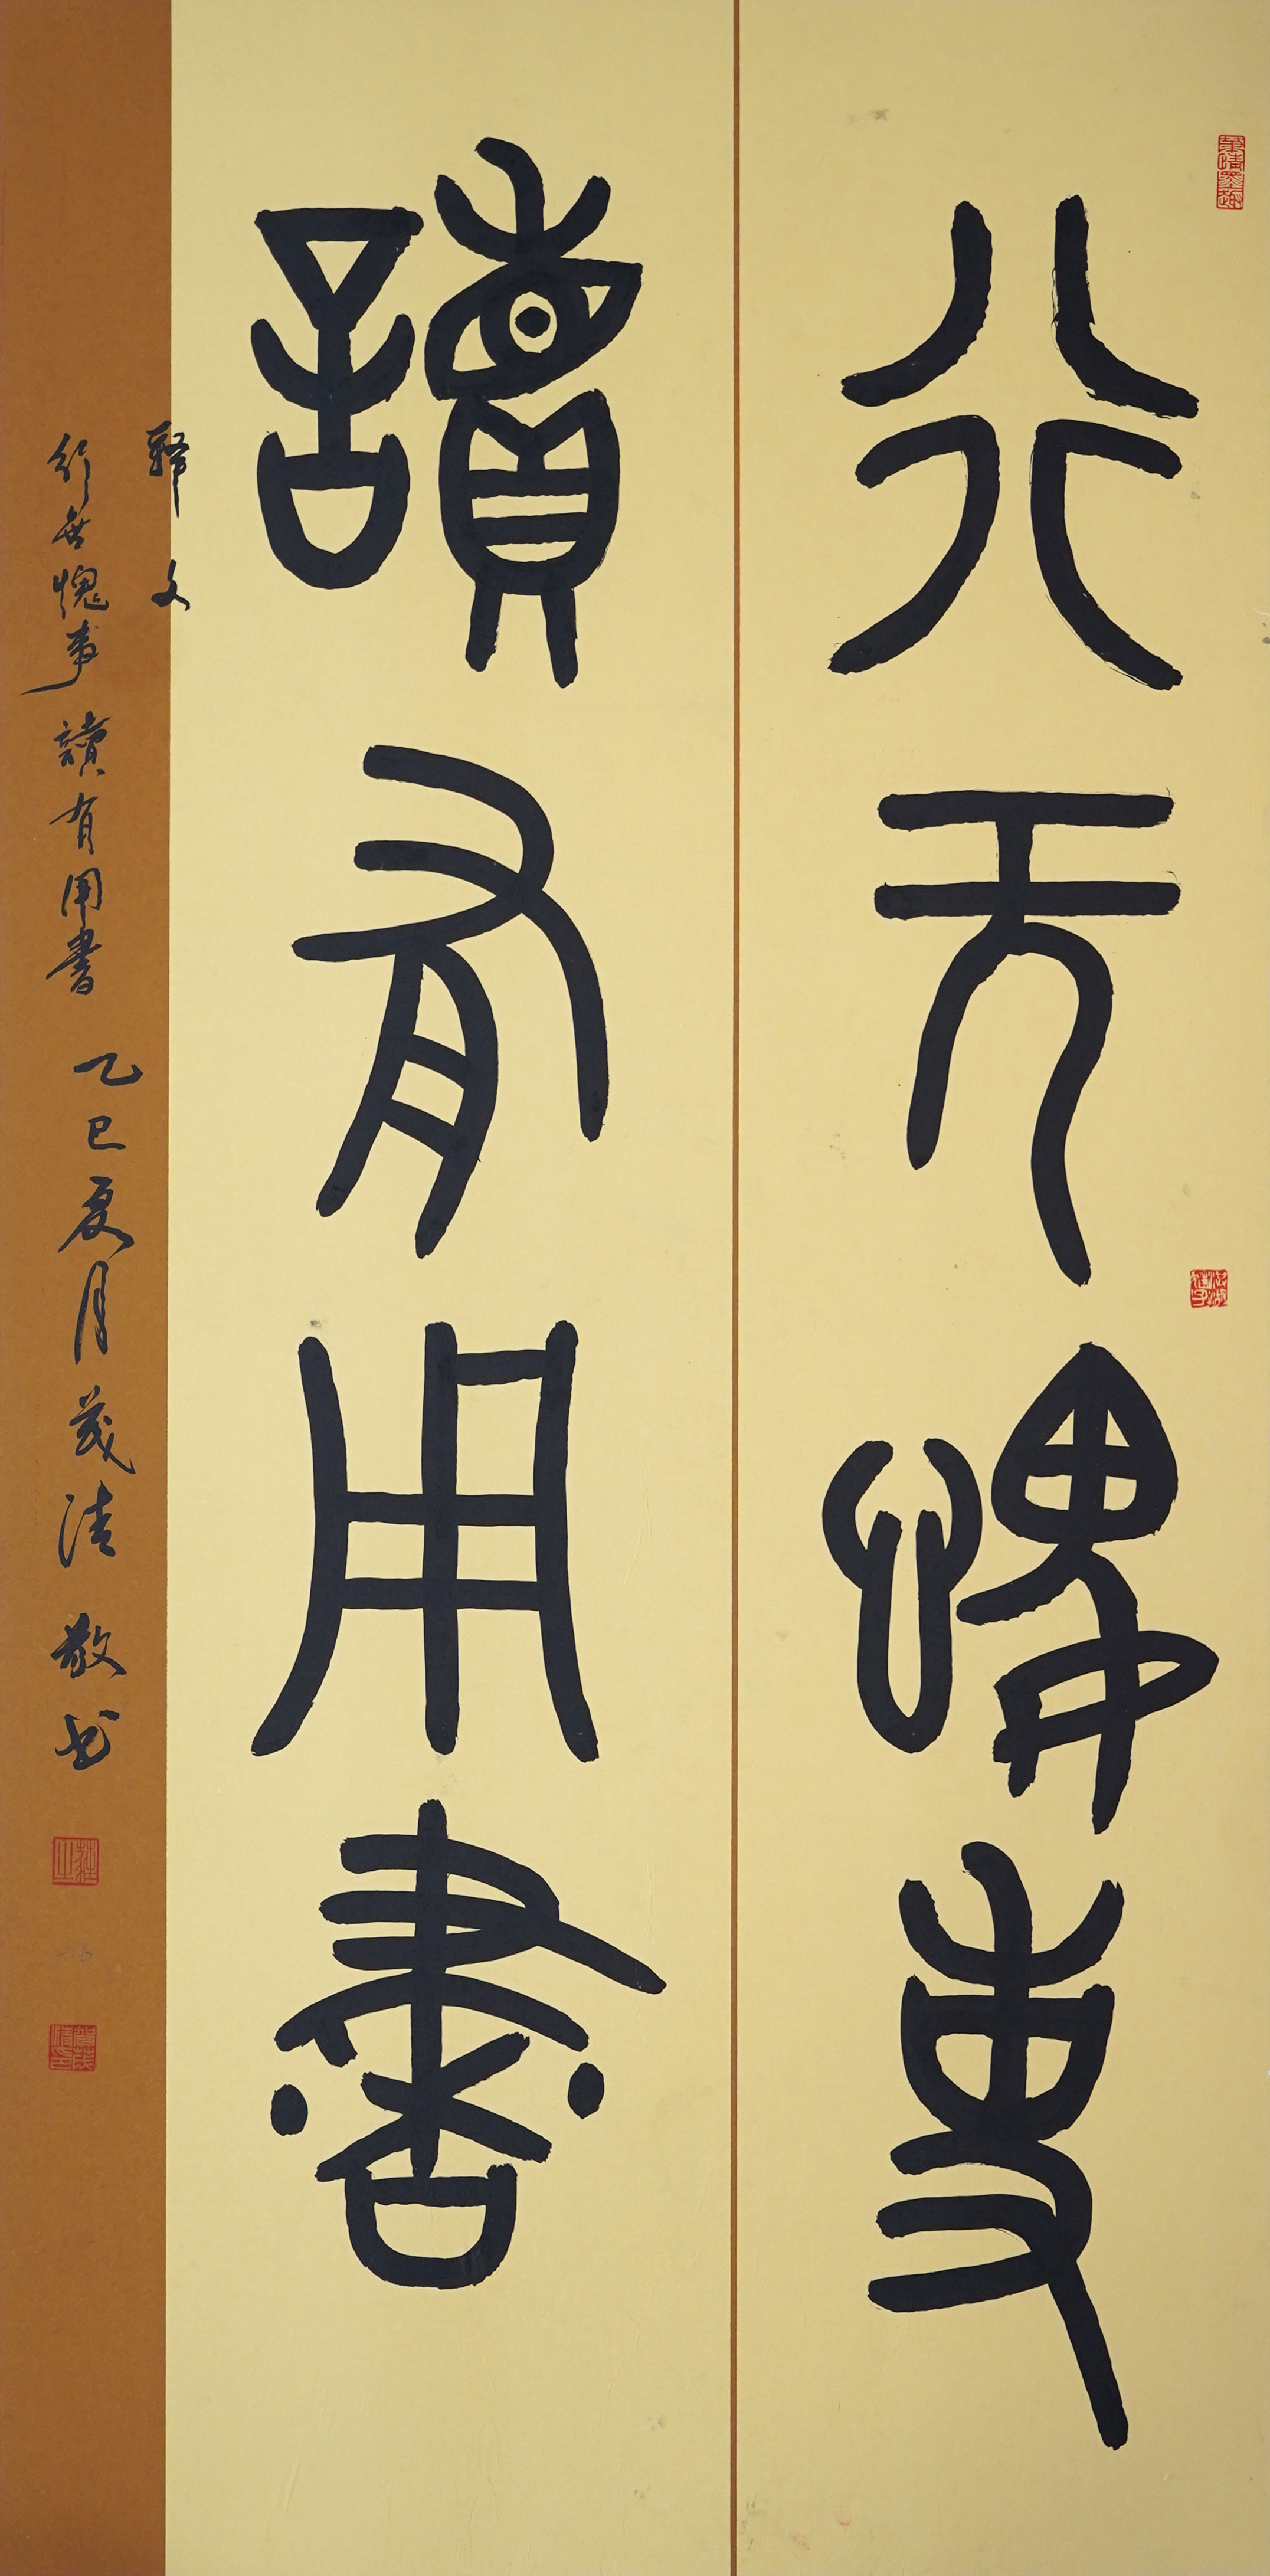 行无愧事
讀有用書
释文
行無愧事讀有用書 乙巳夏月茂清敬书